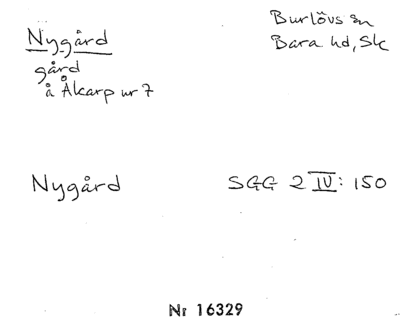 Nygård
gård
å Åkarp nr 7
Burlövs sn
Bara hd, Sk
Nygård
SGG 2 IV: 150
Nr 16329